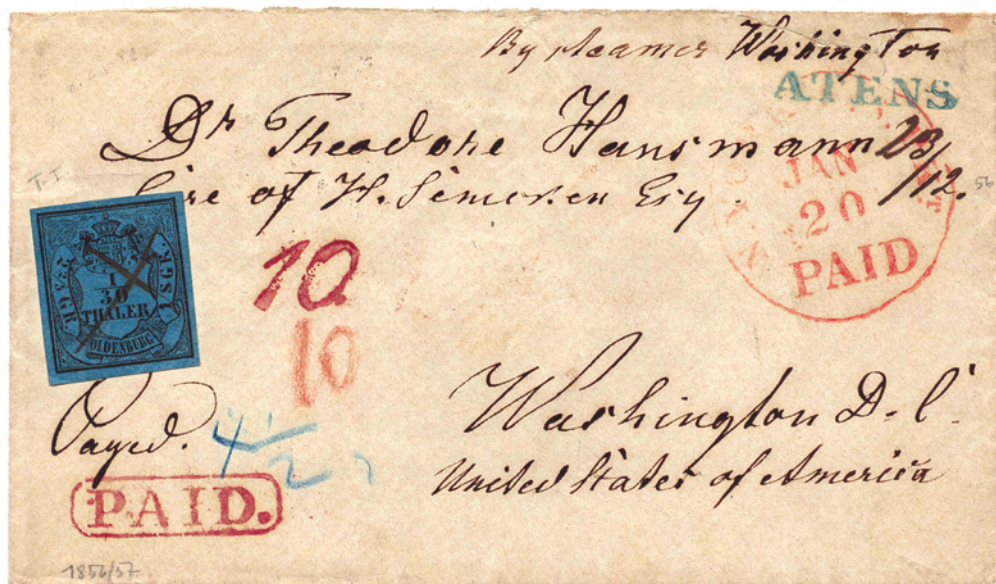 By steamer Washington
ATENS
Dr Theodore Hansmann 23/12.
Care of H. Semken Esq.
JAN
20
PAID
T.T.
56
1
30
THALER
OLDENBURG
1 SGR.
10
10
Payed. 4 1/2
PAID.
Washington D. C.
United States of America
1856/57